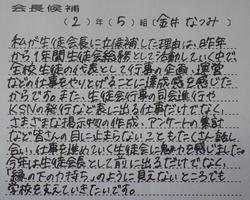 会長候補
(2)年(5)組(金井なつみ)
私が生徒会長に立候補した理由は、昨年
から1年間生徒会総務として活動していく中で、
全校生徒の代表として行事の企画、運営
などの仕事をやりとげることに達成感を感じた
からです。また、生徒会行事の司会進行や
KSNの発行など表に出る仕事だけでなく、
さまざまな掲示物の作成、アンケートの集計
など皆さんの目に止まらないこともたくさん話し
合い、仕事を進めていく生徒会に魅力を感じました。
今年は生徒会長として前に出るだけでなく、
「縁の下の力持ち」のように見えないところでも
学校を支えていきたいです。